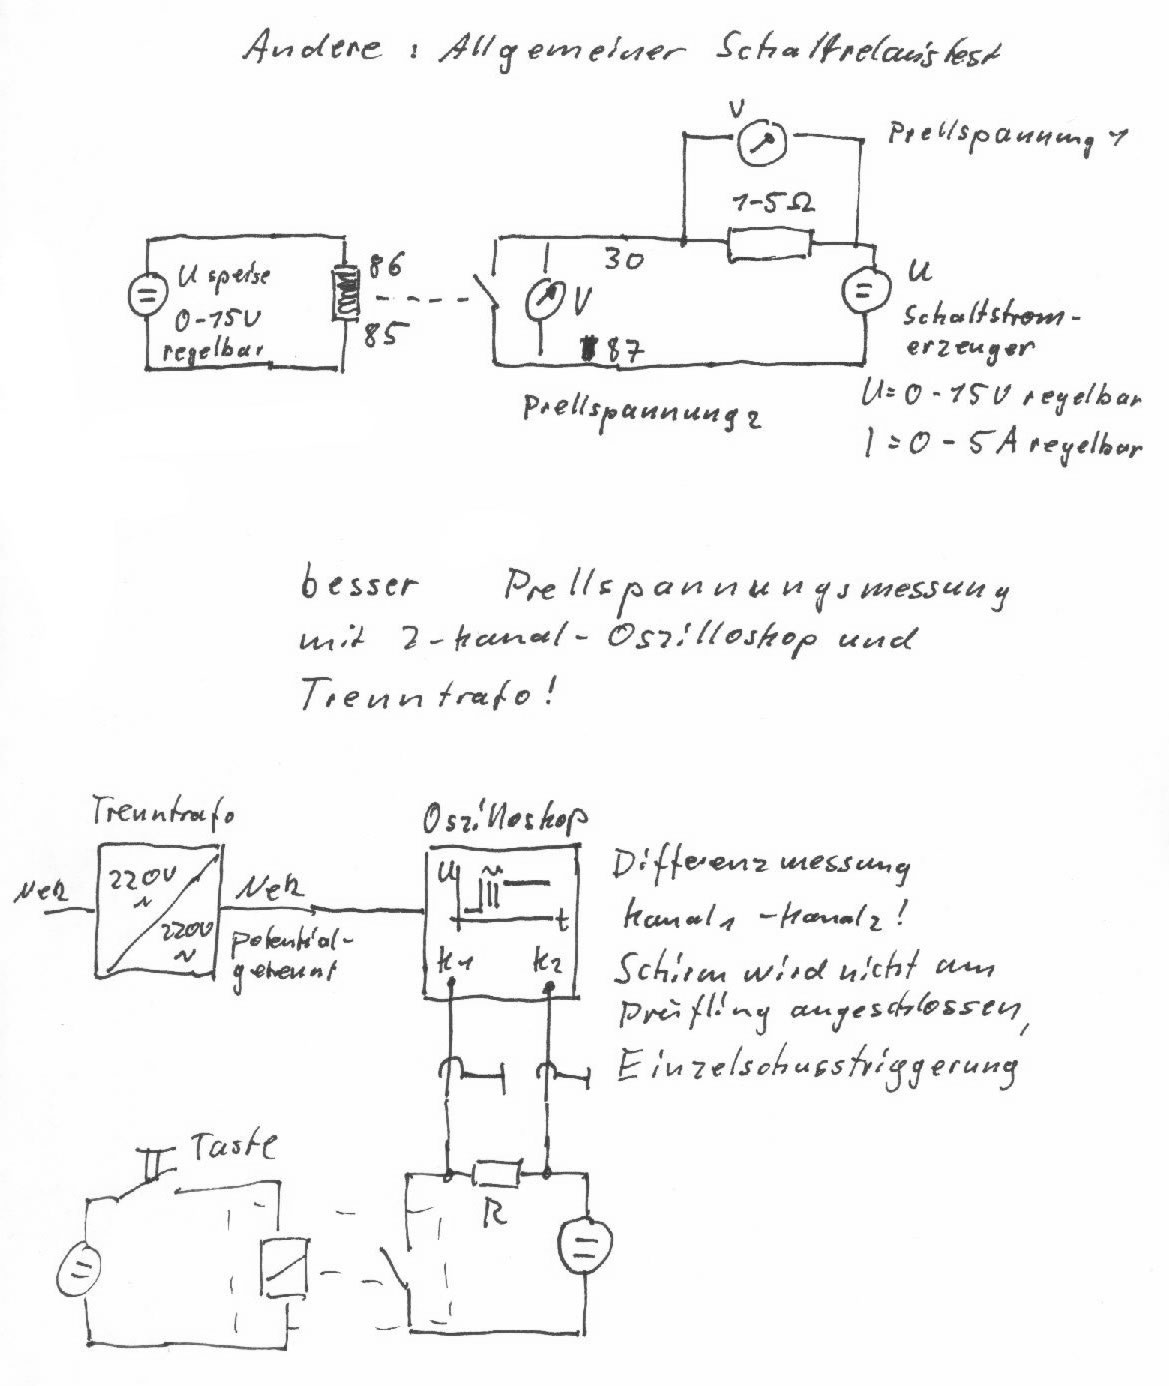 Andere : Allgemeiner Schaltrelaistest
V
Prellspannung 1
1-5Ω
30
U speise
0-15V
regelbar
86
85
V
87
U
Schaltstrom-
erzeuger
U=0-15V regelbar
I=0-5A regelbar
Prellspannung 2
besser Prellspannungsmessung
mit 2-Kanal-Oszilloskop und
Trenntrafo!
Trenntrafo
Oszilloskop
Netz
220V
~
220V
~
Netz
potential-
getrennt
U
t
K1
K2
Differenzmessung
Kanal1 -Kanal2!
Schirm wird nicht am
Prüfling angeschlossen,
Einzelschusstriggerung
Taste
R